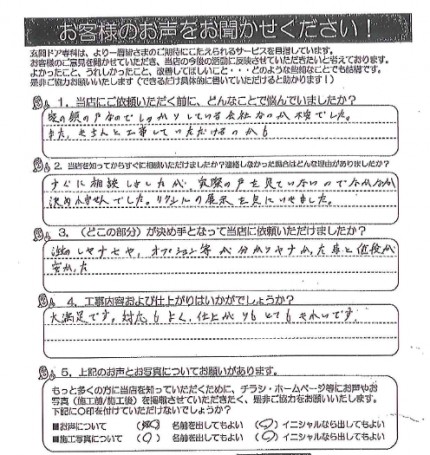 お客様のお声をお聞かせください！
玄関ドア専科は、より一層皆さまのご期待にこたえられるサービスを目指しています。
お客様のご意見を聞かせていただき、当店の今後の活動に反映させていただきたいと考えております。
よかったこと、うれしかったこと、改善してほしいこと・・・どのような些細なことでも結構です。
是非ご協力お願いします（できるだけ具体的に書いていただけると助かります）！
1. 当店にご依頼いただく前に、どんなことで悩んでいましたか？
家の顔の戸なのでしっかりしている会社なのか不安でした。
また、きちんと工事していただけるのかも
2. 当店を知ってからすぐに相談いただけましたか？連絡しなかった場合はどんな理由がありましたか？
すぐに相談しましたが、実際の戸を見ていないのでなかなか
決めれませんでした。リクシルの展示を見にいきました。
3. （どこの部分）が決め手となって当店に依頼いただけましたか？
しやすさや、オプション等が分かりやすかった事と値段が
安かった
4. 工事内容および仕上がりはいかがでしょうか？
大満足です。対応もよく、仕上がりもとてもきれいです。
5. 上記のお声とお写真についてお願いがあります。
もっと多くの方に当店を知っていただくために、チラシ・ホームページ等にお声やお
写真（施工前/施工後）を掲載させていただきたく、是非ご協力をお願いいたします。
下記に〇印を付けていただけないでしょうか？
■お声について （ ） 名前を出してもよい （〇） イニシャルなら出してもよい
■施工写真について （〇） 名前を出してもよい （〇） イニシャルなら出してもよい